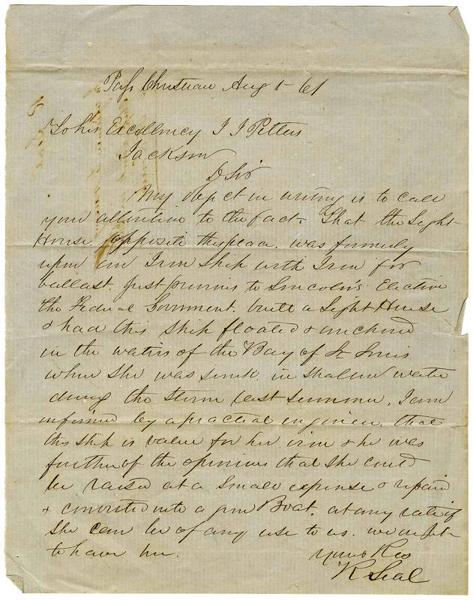 Pass Christian Aug 1 - 61
To his Excellency J J Pettus
Jackson
D Sir
My object in writing is to call
your attention to the fact. That the Light
House opposite this place. was formerly
upon an Iron Ship with Iron for
ballast. Just previous to Lincoln's Election
the Federal Government. built a Light House
& had this ship floated & anchored
in the waters of the Bay of St Louis
when she was sunk in shallow water
during the storm last summer. I am
informed by a practical engineer, that
this ship is value for her iron & he was
further of the opinion that she could
be raised at a small expense & repaired
& converted into a gun Boat. at any rate if
she can be of any use to us. we ought
to have her.
Yours Res
R Seal